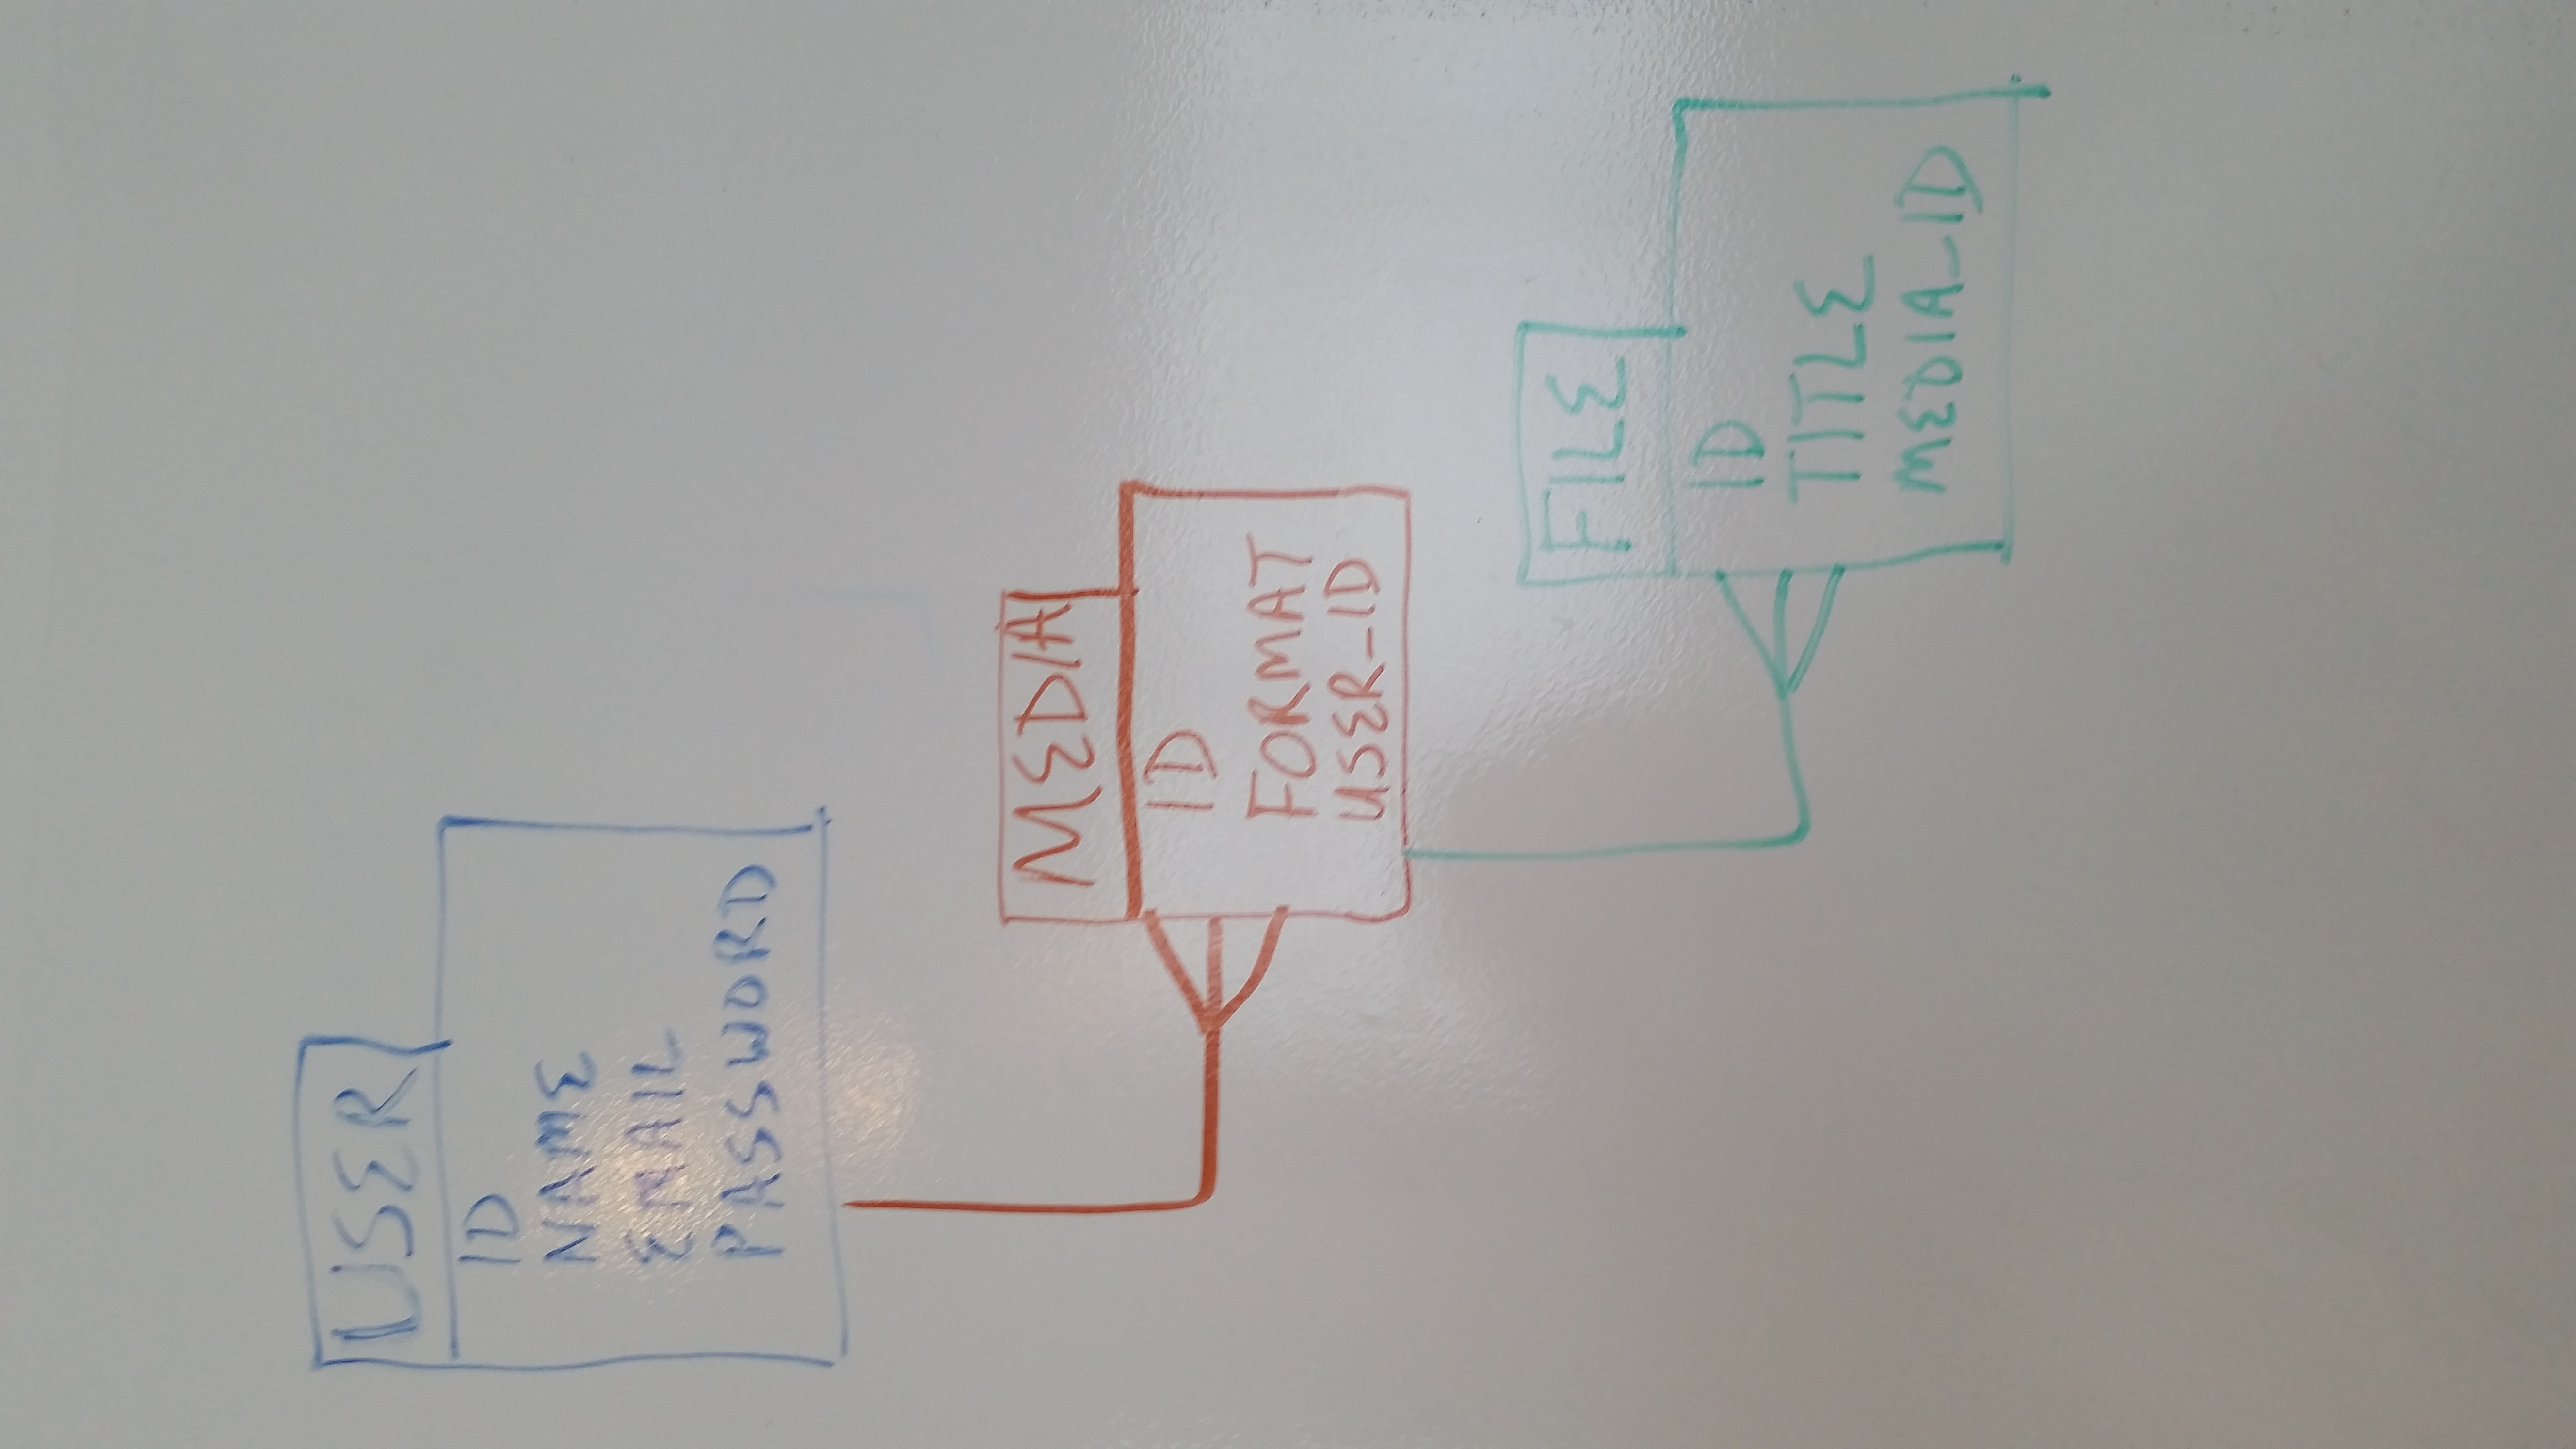 USER
ID
NAME
EMAIL
PASSWORD
MEDIA
ID
FORMAT
USER_ID
FILE
ID
TITLE
MEDIA_ID